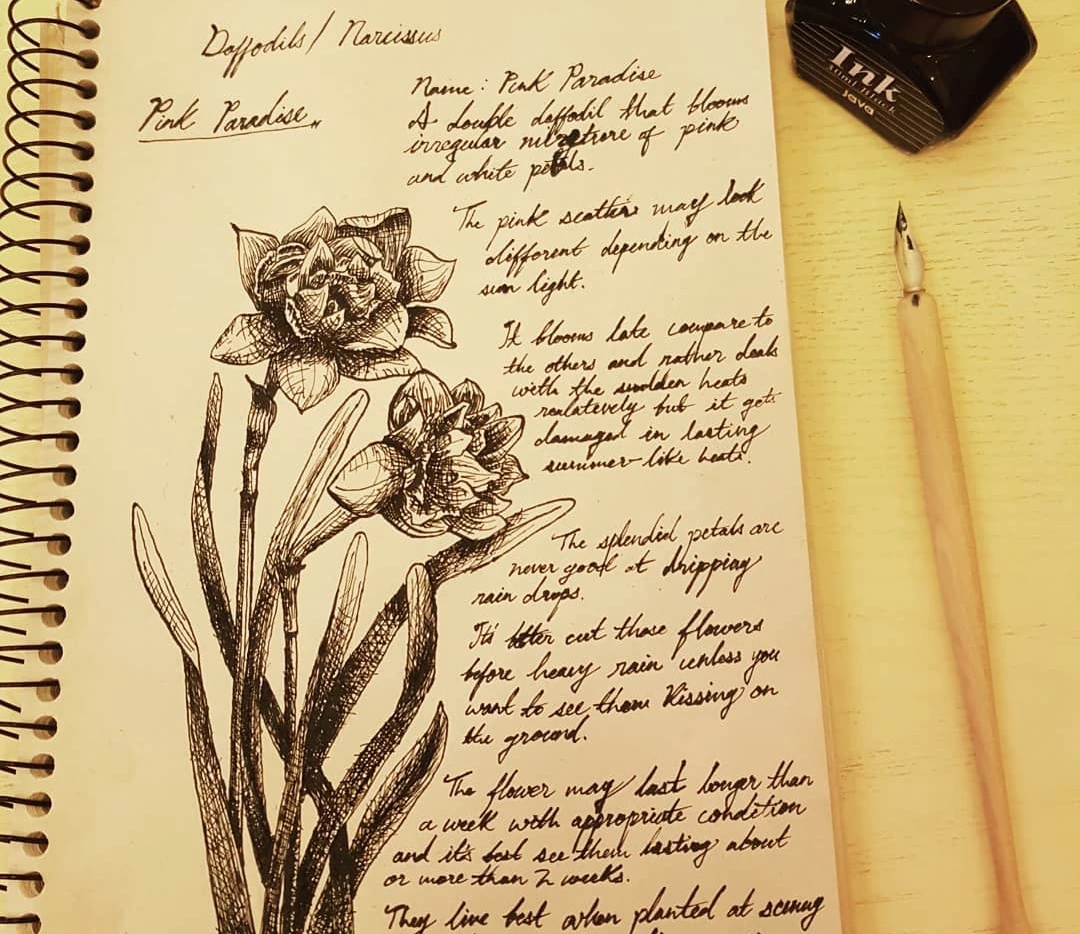 Daffodils / Narcissus
Pink Paradise
Name: Pink Paradise
A double daffodil that blooms
irregular of pink
and white petals.
The pink scatters may look
different depending on the
sun light.
It blooms late compare to
the others and rather deals
with the sudden heats
realatively but it gets
damaged in lasting
summer-like heats.
The splendid petals are
never good at dripping
rain drops.
It's better cut those flowers
before heavy rain unless you
want to see them kissing on
the ground.
The flower may last longer than
a week with appropriate condition
and it's best see them lasting about
or more than 2 weeks.
They live best when planted at
Ink
java